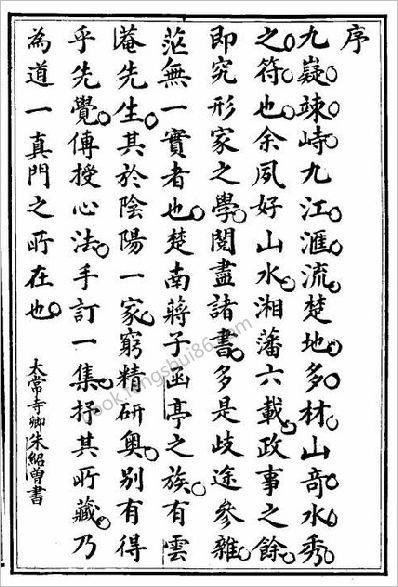 序
九嶷竦峙九江滙流楚地多材山竒水秀
之符也余夙好山水湘藩六載政事之餘
即究形家之學閱盡諸書多是歧途參雜
茫無一實者也楚南蔣子函亭之族有雲
菴先生其於陰陽一家窮精研奥別有得
乎先覺傳授心法手訂一集抒其所藏乃
為道一真門之所在也
太常寺卿朱紹曽書